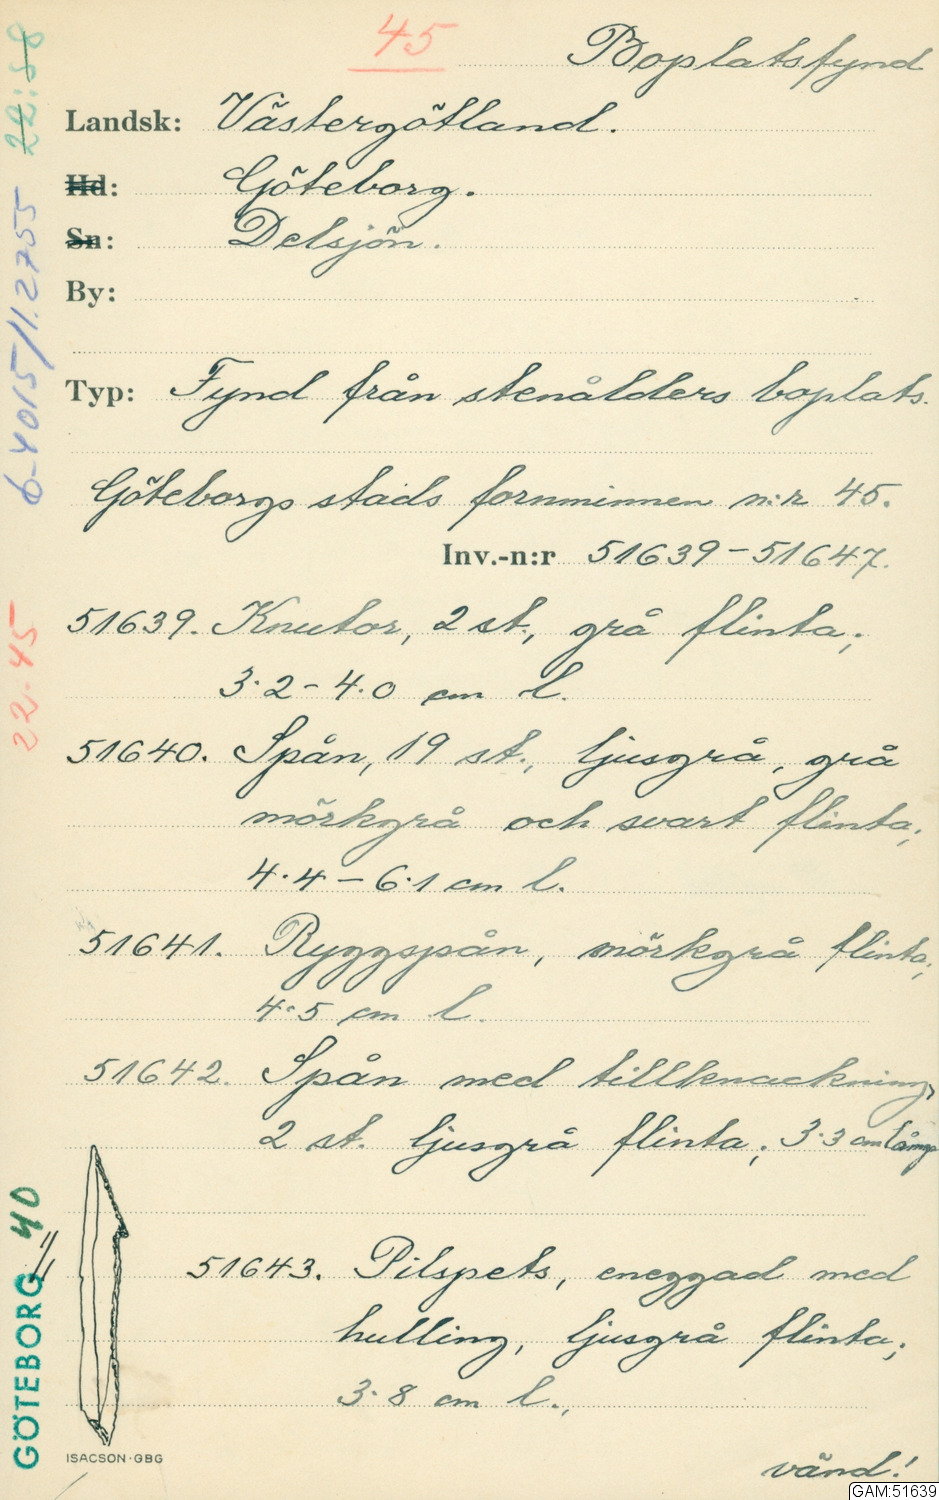 45
Boplatsfynd
Landsk: Västergötland.
Hd: Göteborg.
Sn: Delsjön.
By:
Typ: Fynd från stenålders boplats.
Göteborgs stads fornminnen n:r 45.
Inv.-n:r 51639-51647.
51639. Knutor, 2 st., grå flinta;
3.2-4.0 cm l.
51640. Spån, 19 st., ljusgrå, grå
mörkgrå och svart flinta;
4.4-6.1 cm l.
51641. Ryggspån, mörkgrå flinta;
4.5 cm l.
51642. Spån med tillknackning,
2 st. ljusgrå flinta; 3.3 cm lång
51643. Pilspets, eneggad med
hulling, ljusgrå flinta;
3.8 cm l.,
vänd!
22:58
6-4015/1.2755
22:45
GÖTEBORG 40
ISACSON·GBG
GAM:51639